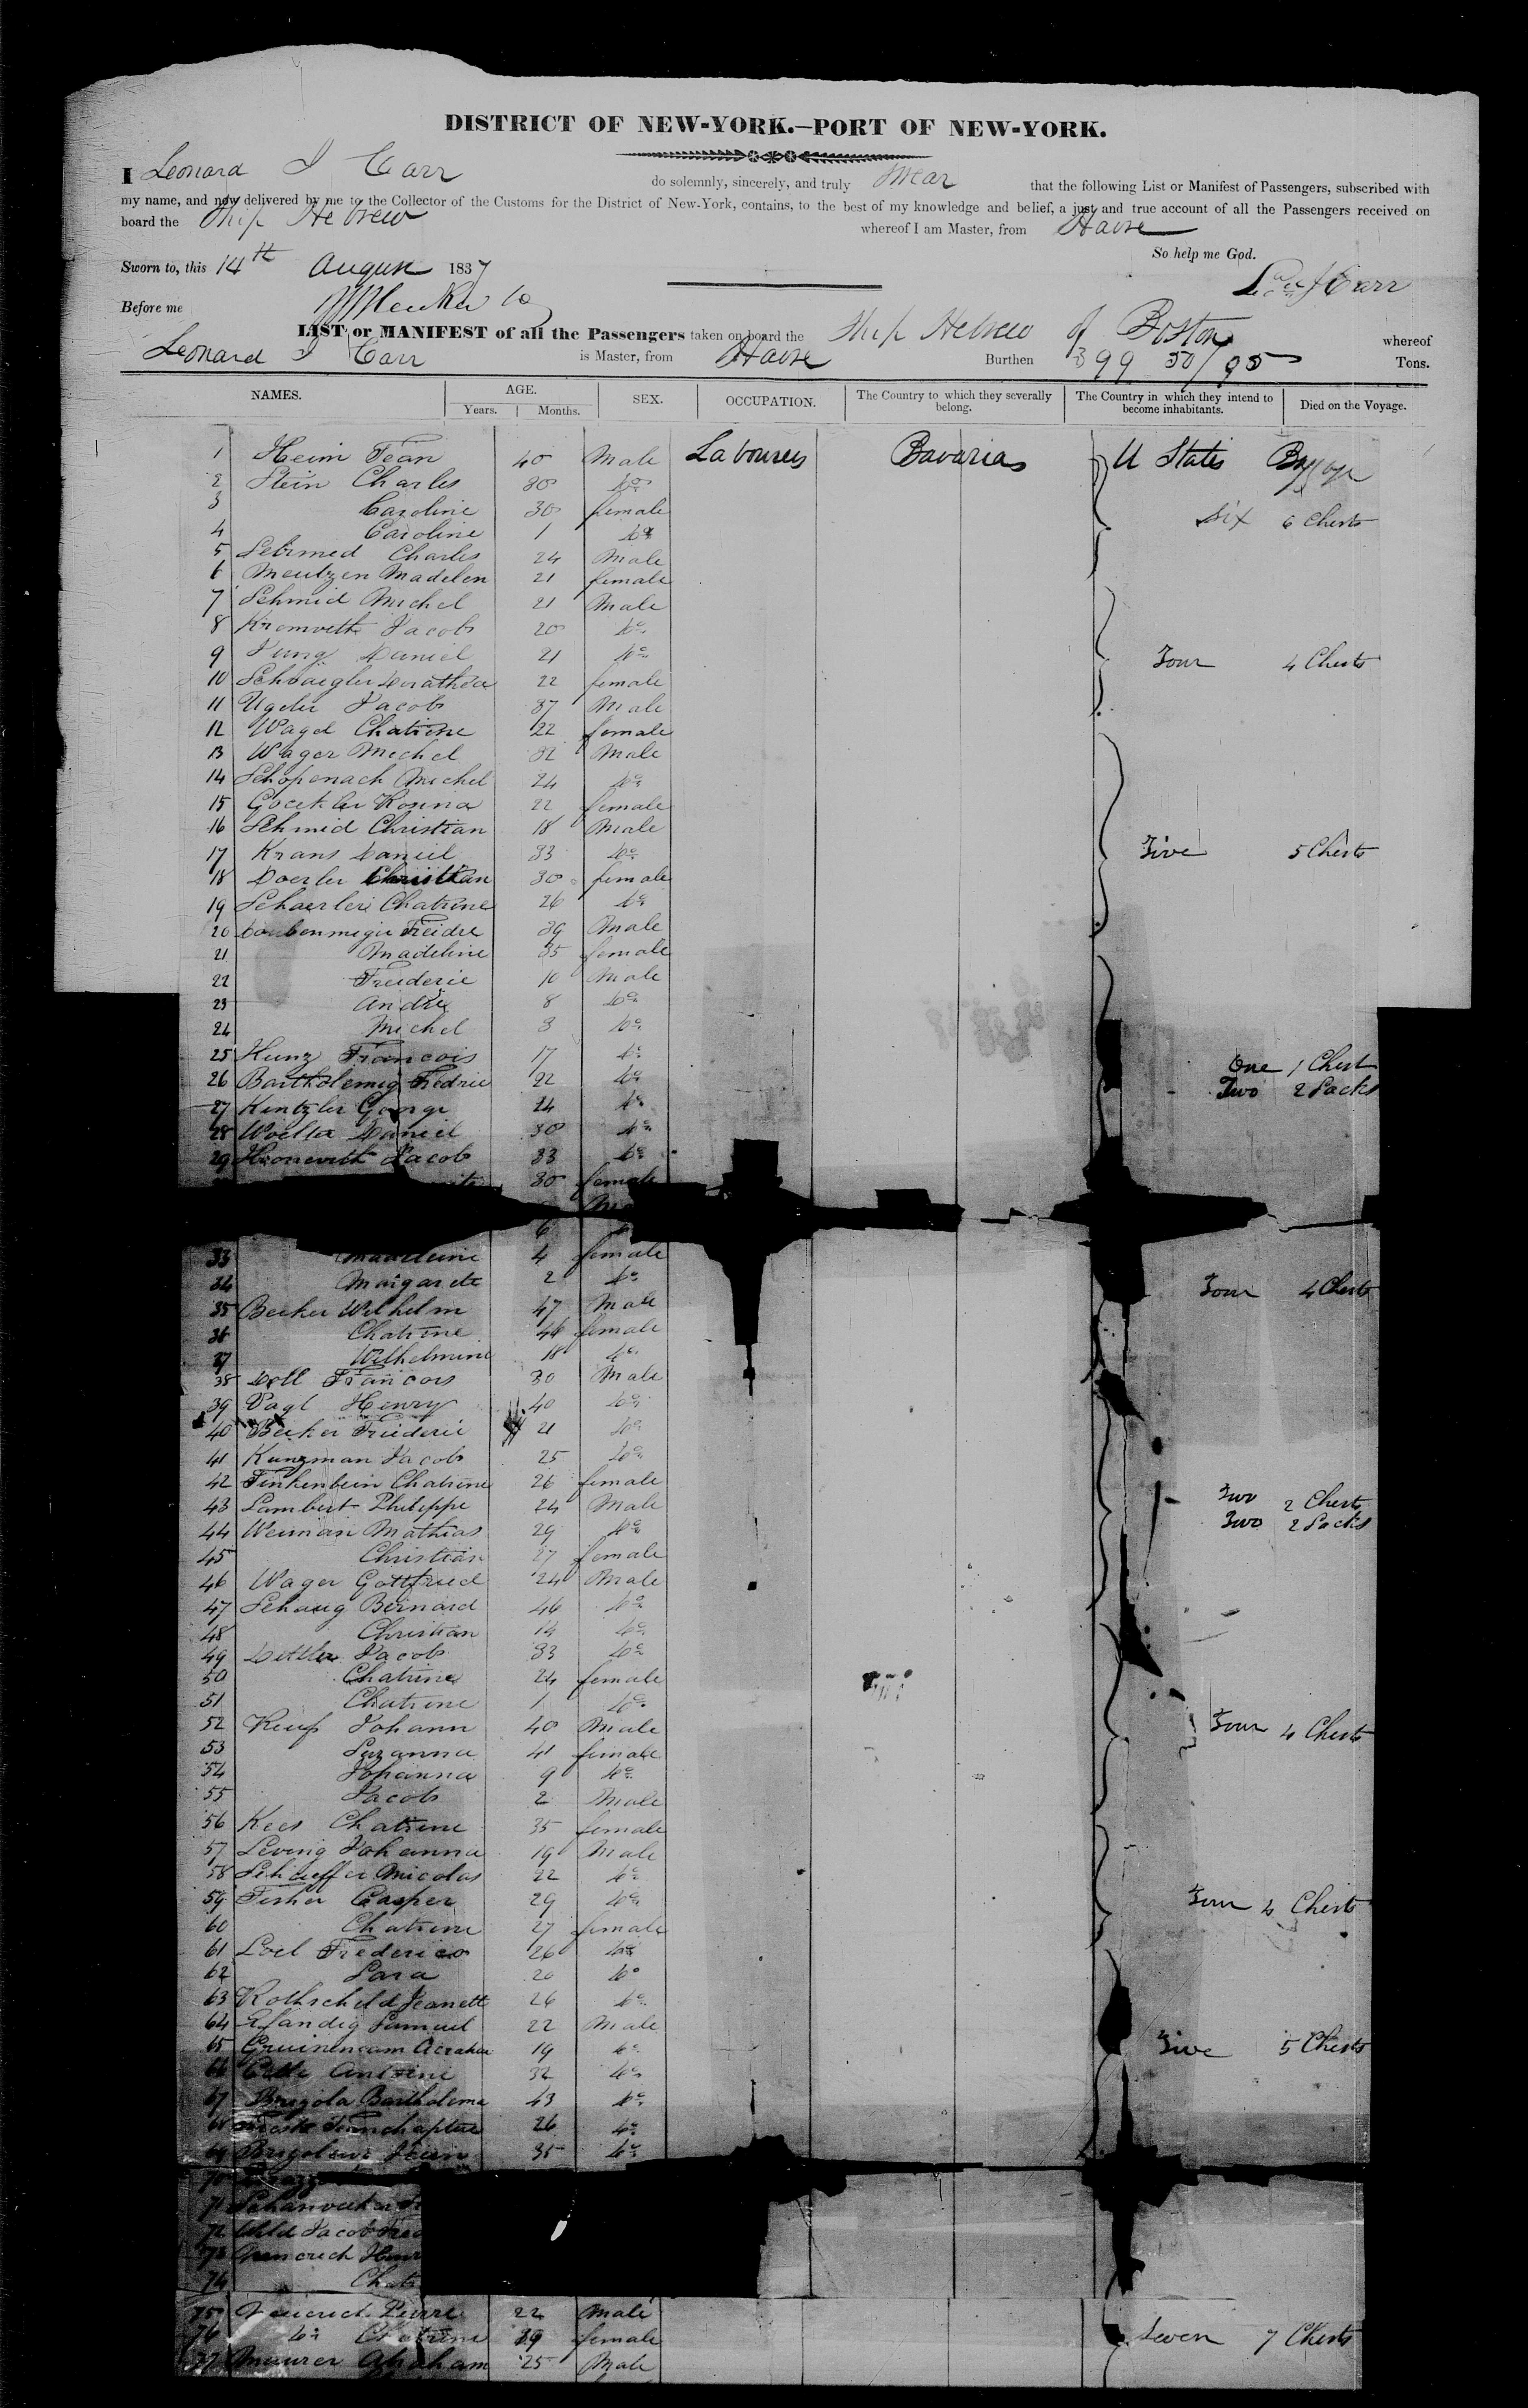 DISTRICT OF NEW-YORK.—PORT OF NEW-YORK.
I Leonard J Carr do solemnly, sincerely, and truly swear that the following List or Manifest of Passengers, subscribed with
my name, and now delivered by me to the Collector of the Customs for the District of New-York, contains, to the best of my knowledge and belief, a just and true account of all the Passengers received on
board the Ship Hebrew whereof I am Master, from Havre
So help me God.
Sworn to, this 14th August 1837
Carr
Before me
LIST or MANIFEST of all the Passengers taken on board the Ship Hebrew of Boston whereof
Leonard J Carr is Master, from Havre Burthen 399 50/95 Tons.
NAMES. AGE. SEX. OCCUPATION. The Country to which they severally belong. The Country in which they intend to become inhabitants. Died on the Voyage.
Years. Months.
1 Heim Jean 40 Male Labourers Bavarias U States Baggage
2 Stein Charles 30 do
3 Caroline 30 female
six 6 Chests
4 Caroline 1 do
5 Charles 24 Male
6 Meutzen Madelen 21 female
7 Schmid Michel 21 Male
8 Kromveth Jacob 20 do
9 Jung Daniel 21 do
Four 4 Chests
10 Schvaigler Dorathea 22 female
11 Ugeler Jacob 37 Male
12 Wagel Chatrine 22 female
13 Wager Michel 32 Male
14 Schopenach Michel 24 do
15 Rosina 22 female
16 Schmid Christian 18 Male
17 Krans Daniel 33 do
Five 5 Chests
18 Doerler Christian 30 female
19 Schaerleri Chatrine 26 do
20 39 Male
21 Madeline 35 female
22 Frederic 10 Male
23 Andre 8 do
24 Michel 3 do
25 Kunz Francois 17 do
One 1 Chest
26 Bartholemig Fredric 22 do
Two 2 Sacks
27 Kentzler George 24 do
28 Woeller Daniel 30 do
29 Jacob 33 do
30 female
6
33 Madeleine 4 female
34 Margarete 2 do
Four 4 Chests
35 Becker Wilhelm 47 Male
36 Chatrine 46 female
37 Wilhelmine 18 do
38 Doll Francois 30 Male
39 Vagt Henry 40 do
40 Becker Friederic 21 do
41 Kunzman Jacob 25 do
42 Finkenbein Chatrine 26 female
43 Lambert Philippe 24 Male
Two 2 Chests
44 Weiman Mathias 29 do
Two 2 Sacks
45 Christian 27 female
46 Wager Gottfried 24 Male
47 Schaug Bernard 46 do
48 Christian 14 do
49 Jacob 33 do
50 Chatrine 24 female
51 Chatrine 1 do
52 Johann 40 Male
Four 4 Chests
53 Suzanna 41 female
54 Johanna 9 do
55 Jacob 2 Male
56 Kees Chatrine 35 female
57 Leving Johanna 19 Male
58 Schaeffer Nicolas 22 do
59 Fisher Casper 29 do
Four 4 Chests
60 Chatrine 27 female
61 Loel Frederico 26 do
62 Sara 20 do
63 Rothscheld Jeanett 26 do
64 Samuel 22 Male
65 19 do
Five 5 Chests
66 Antoine 32 do
67 Brigola Bartholeme 43 do
68 26 do
69 Jean 35 do
70
71
72 Jacob
73
74
75 Pierre 22 Male
76 do Chatrine 39 female
Seven 7 Chests
77 Maurer Abraham 25 Male